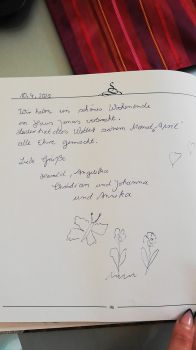 10.4.2022
Wir haben ein schönes Wochenende
im Haus Jonas verbracht.
Leider hat das Wetter seinem Monat April
alle Ehre gemacht.
Liebe Grüße
Harald, Angelika
Christian und Johanna
und Annika